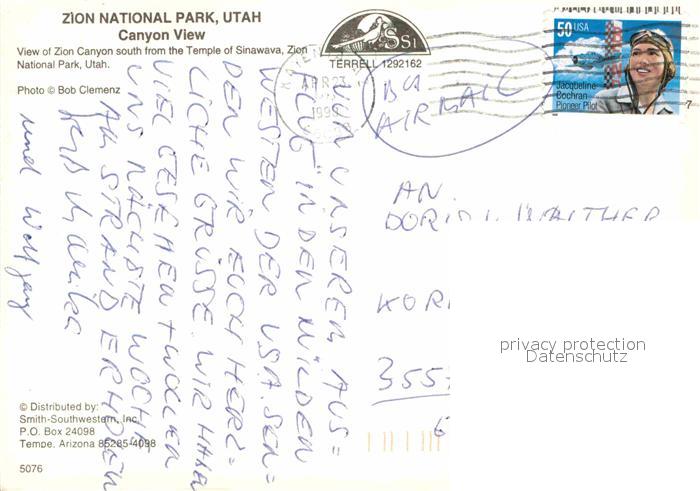 ZION NATIONAL PARK, UTAH
Canyon View
View of Zion Canyon south from the Temple of Sinawava, Zion
National Park, Utah.
Photo © Bob Clemenz
SSI
TERRELL 1292162
APR 23
50 USA
Jacqueline
Cochran
Pioneer Pilot
BY
AIRMAIL
VON UNSEREM AUS=
FLUG IN DEN WILDEN
WESTEN DER USA SEN=
DEN WIR EUCH HERZ=
LICHE GRÜSSE. WIR HABEN
VIEL GESEHEN + WOLLEN
UNS NÄCHSTE WOCHE
AM STRAND ERHOLEN
und Wolfgang
AN
DORIS
355
privacy protection
Datenschutz
© Distributed by:
Smith-Southwestern, Inc.
P.O. Box 24098
Tempe, Arizona 85285-4098
5076